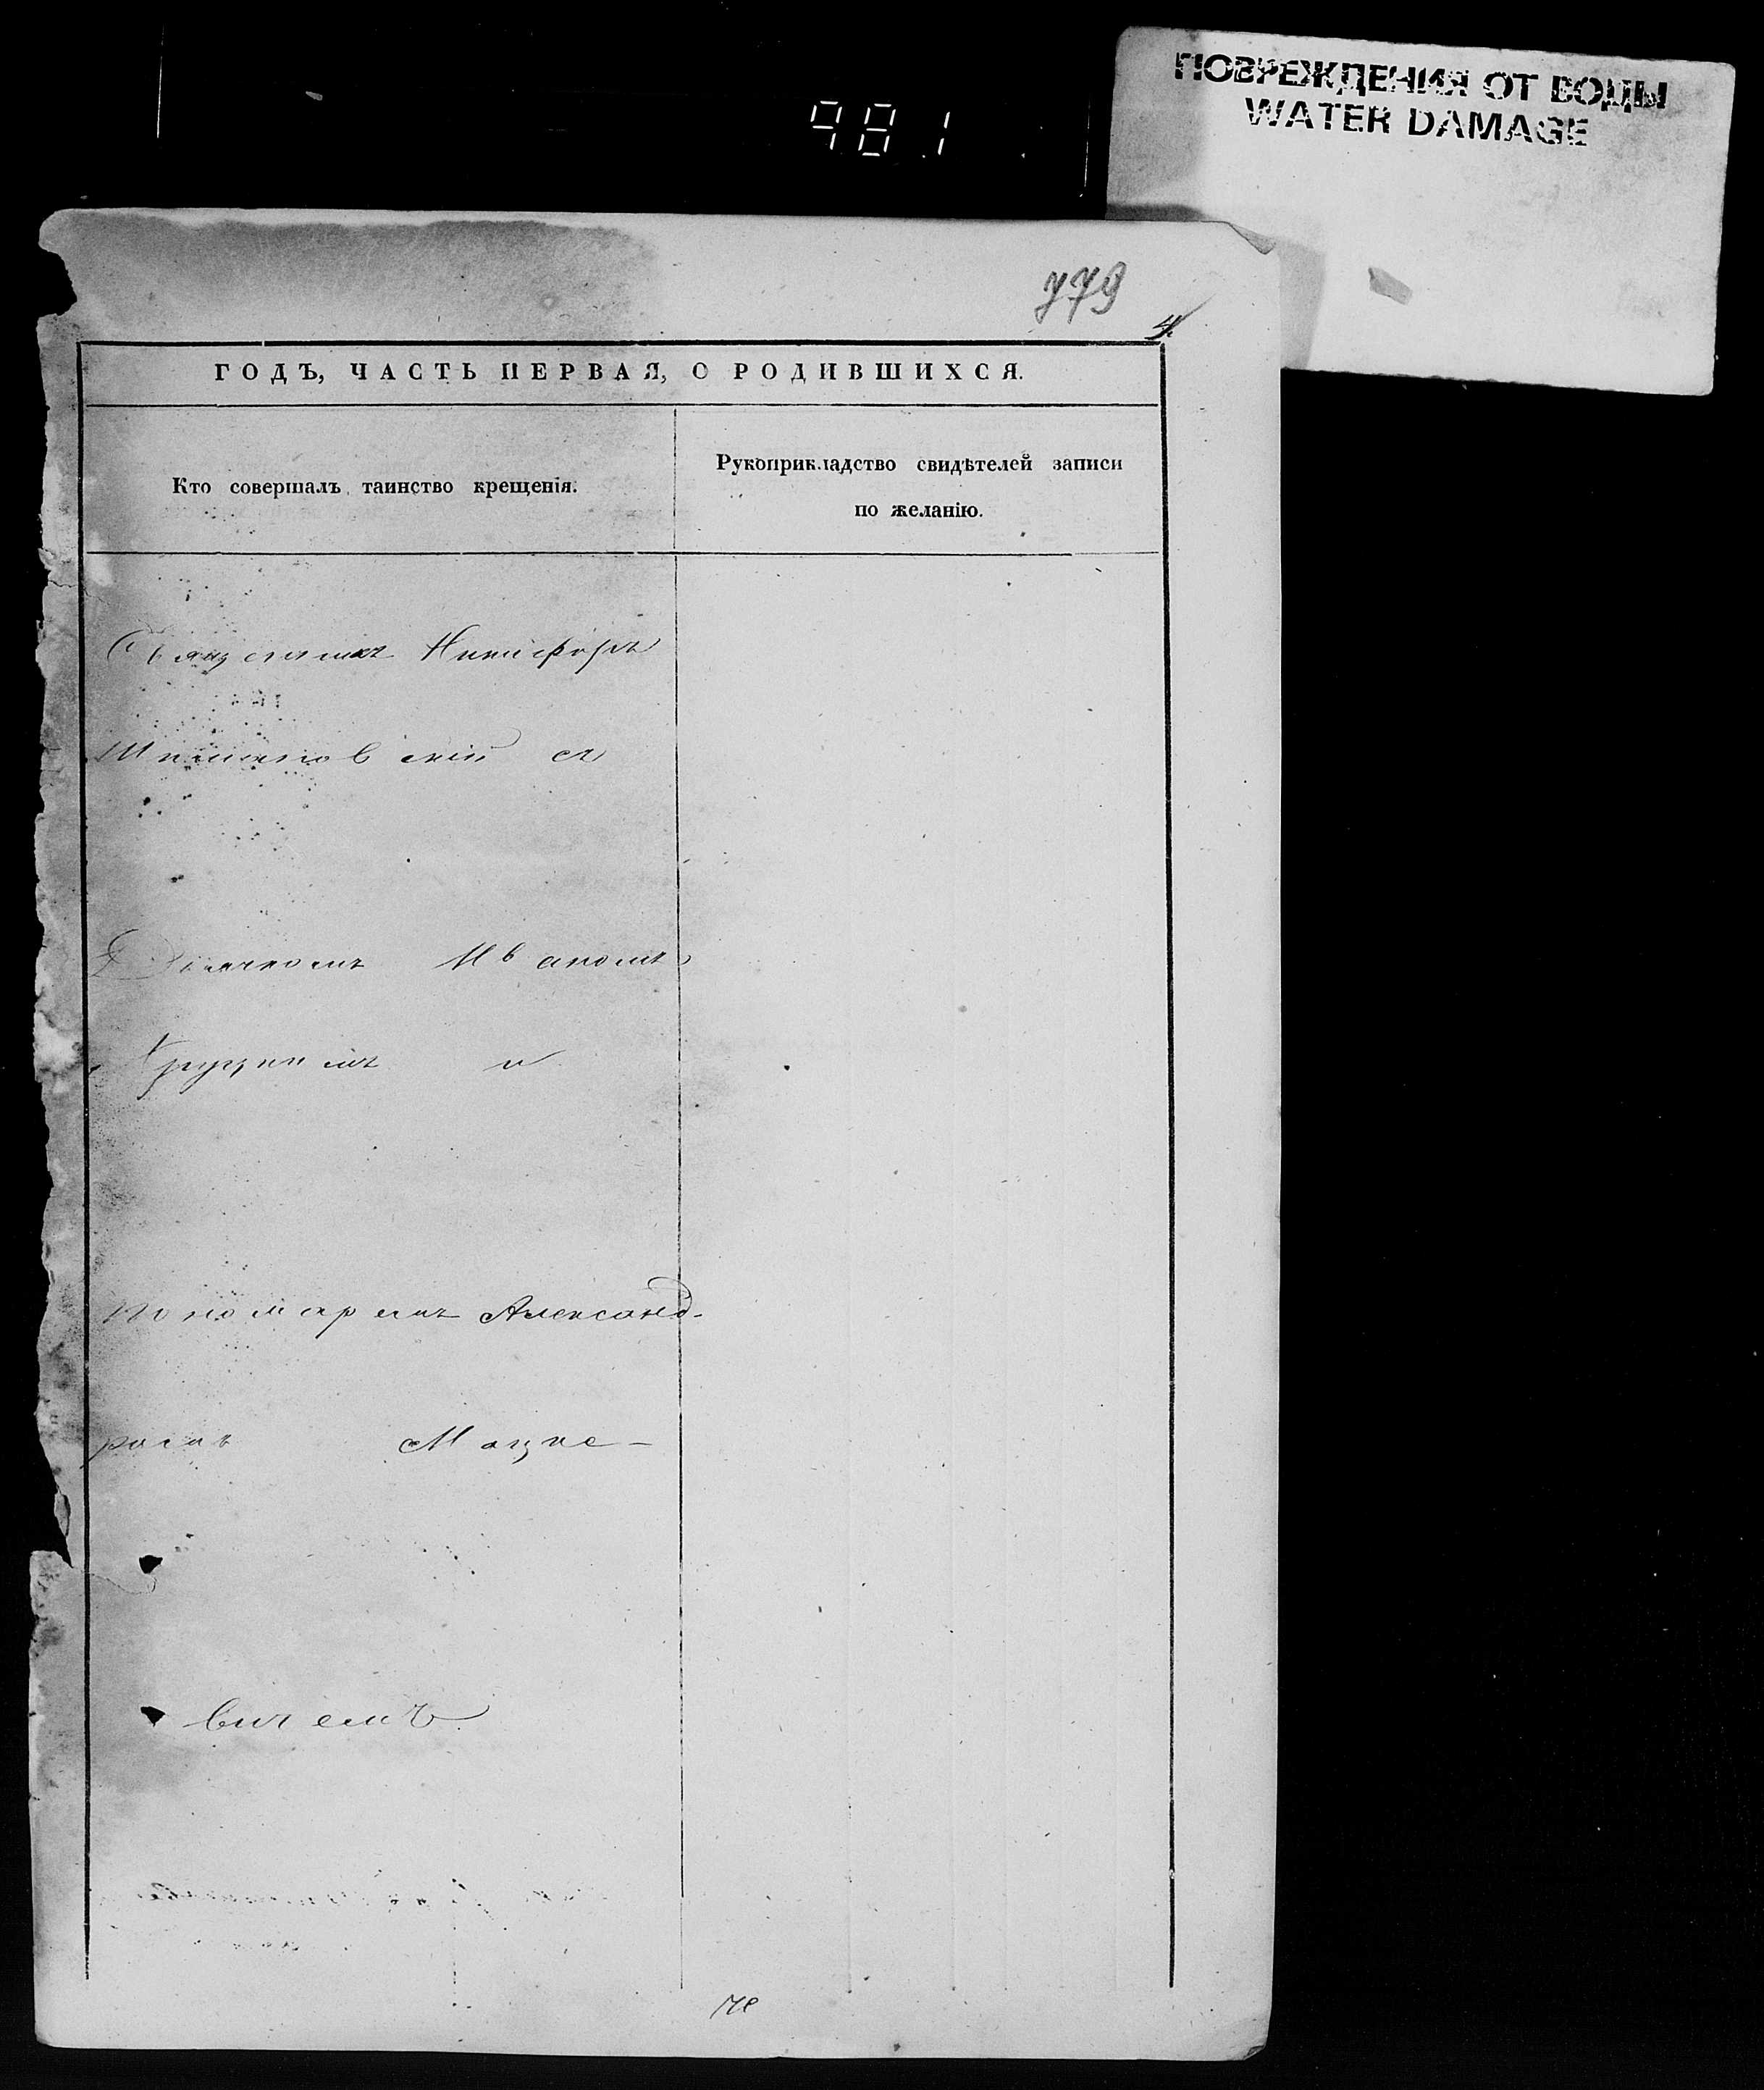 ПОВРЕЖДЕНИЯ ОТ ВОДЫ
WATER DAMAGE
981
779
4.
ГОДЪ, ЧАСТЬ ПЕРВАЯ, О РОДИВШИХСЯ.
Кто совершалъ таинство крещенія.
Рукоприкладство свидѣтелей записи
по желанію.
Священникъ Никифоръ
съ
Дьячкомъ Иваномъ
и
Пономаремъ Александ-
ромъ Мацке-
вичемъ.